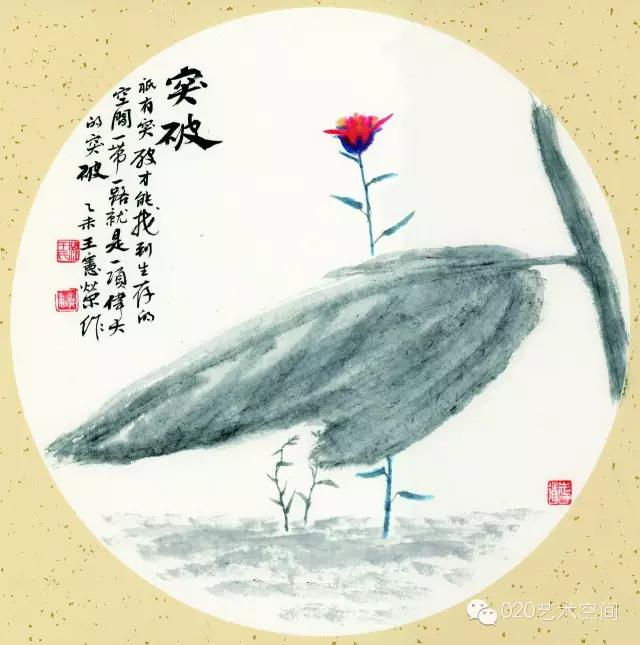 突破
祇有突破才能找到生存的
空間一带一路就是一項偉大
的突破 乙未王憲榮作
020艺术空间